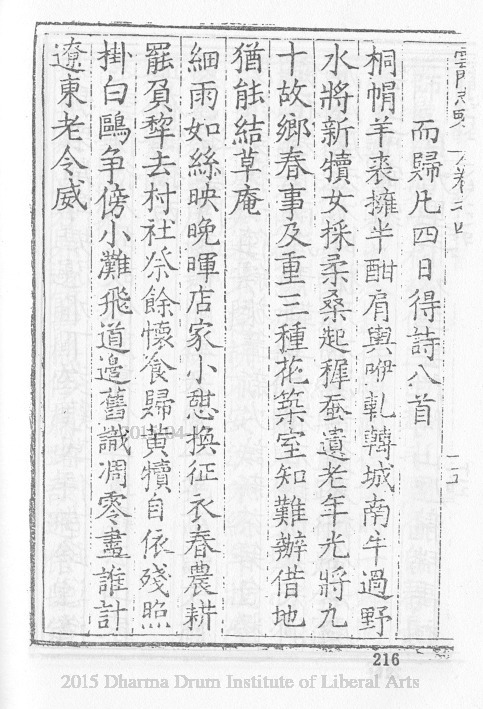 雲門志略 卷之四 十五
而歸凡四日得詩八首
桐帽羊裘擁半酣肩輿咿軋轉城南牛過野
水將新犢女採柔桑起穉蚕遺老年光將九
十故鄉春事及重三種花築室知難辦借地
猶能結草庵
細雨如絲映晚暉店家小憩換征衣春農耕
罷負犂去村社祭餘懷餐歸黃犢自依殘照
掛白鷗争傍小灘飛道邊舊識凋零盡誰計
遼東老令威
216
2015 Dharma Drum Institute of Liberal Arts